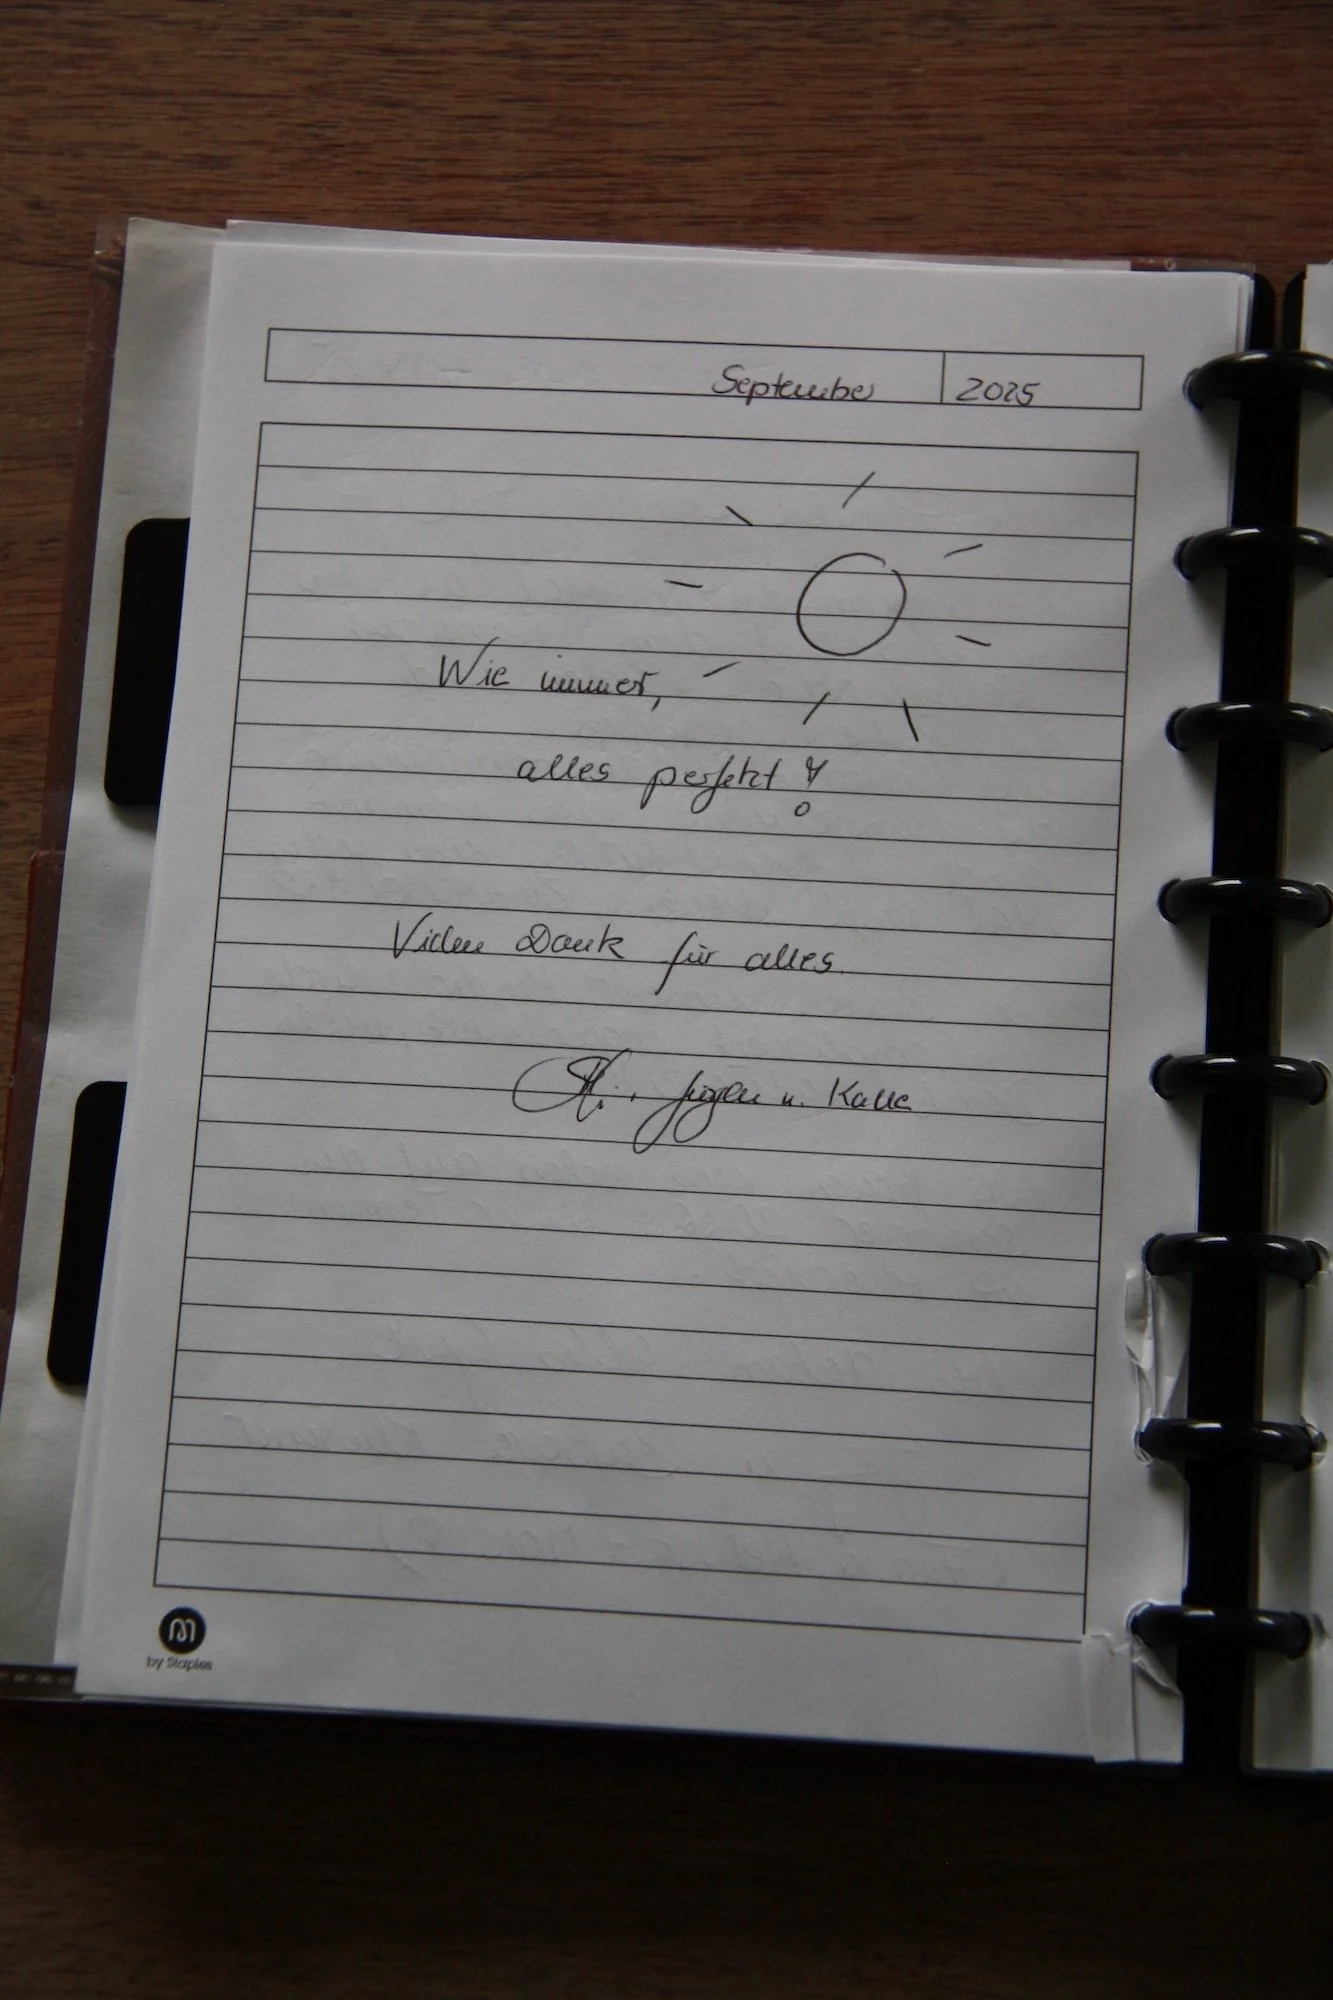 September 2025
Wie immer,
alles perfekt!
Vielen Dank für alles.
Jürgen u. Kalle
by Staples